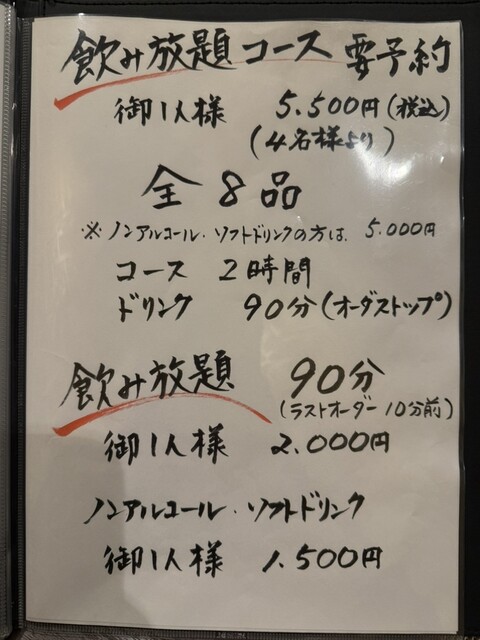 飲み放題コース 要予約
御1人様 5.500円(税込)
(4名様より)
全8品
※ノンアルコール.ソフトドリンクの方は、5.000円
コース 2時間
ドリンク 90分(オーダストップ)
飲み放題 90分
(ラストオーダー10分前)
御1人様 2.000円
ノンアルコール.ソフトドリンク
御1人様 1.500円